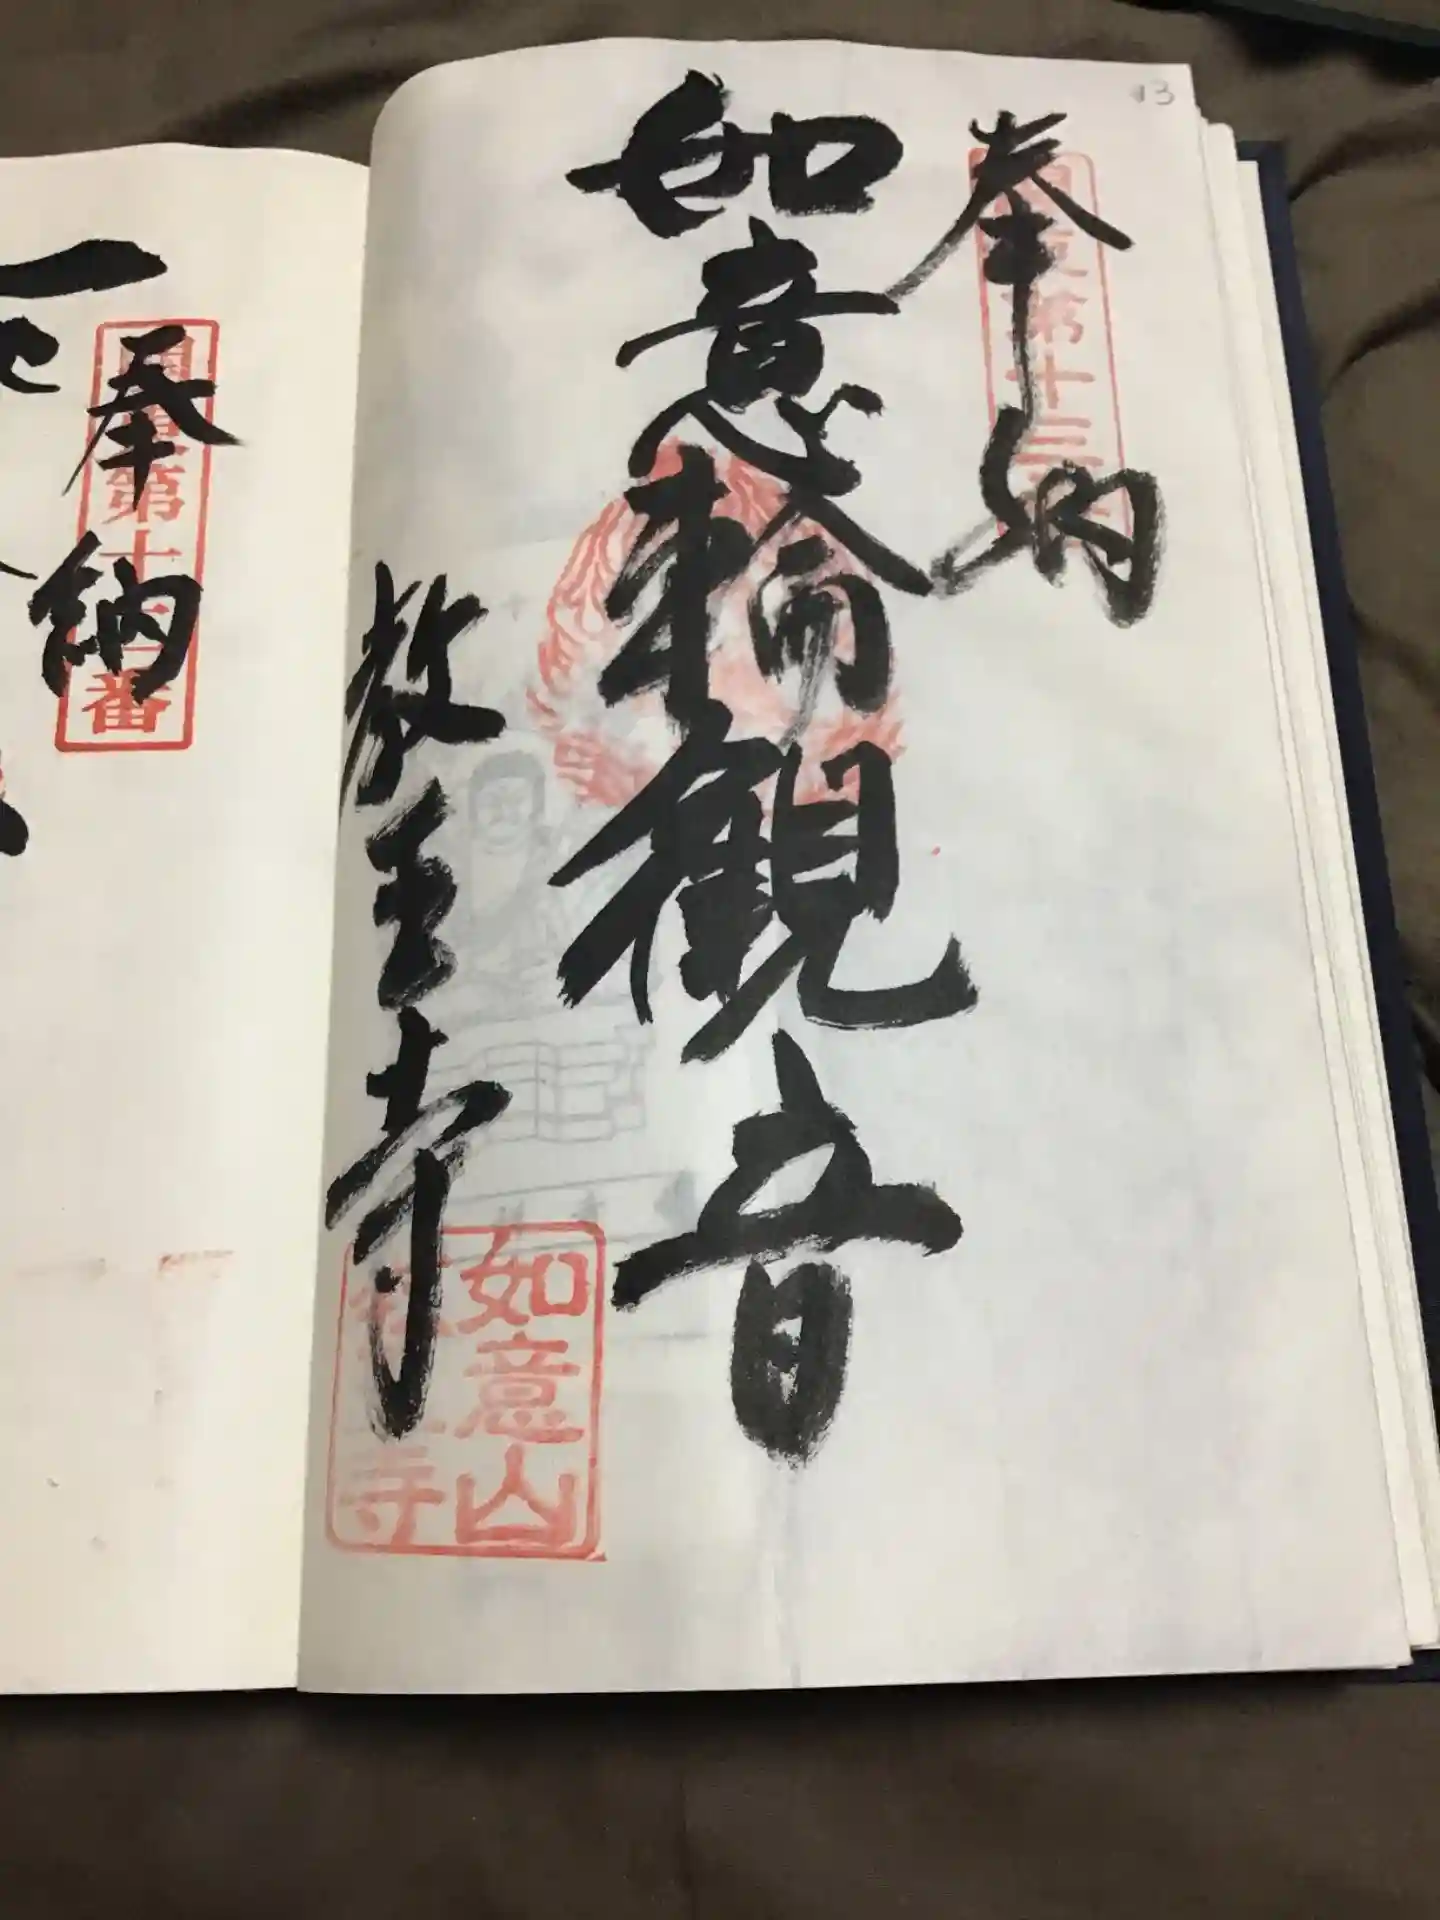 13
奉納
第十三
如意輪観音
教王寺
如意山
寺
奉納
第十二番